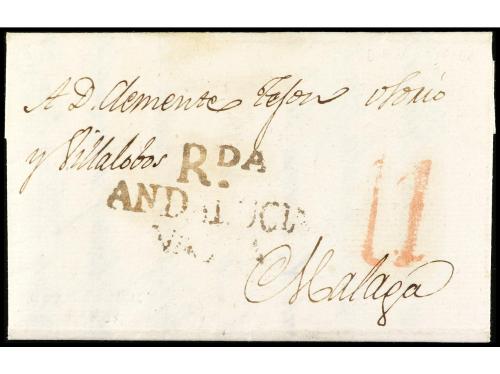 A D. Clemente Tejon osorio
y Villalobos
R.DA
ANDALUCIA
11
Malaga